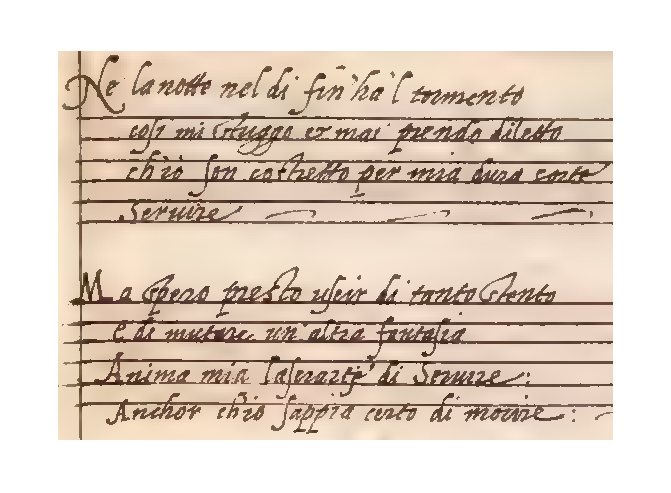 Ne la notte nel di fin' ha'l tormento
cosi mi struggo et mai prendo diletto
ch'io son costretto per mia dura sorte
Servire
Ma spero presto uscir di tanto stento
E di mutare un'altra fantasia
Anima mia lascarte di Servire:
Anchor ch'io sappia certo di morire: